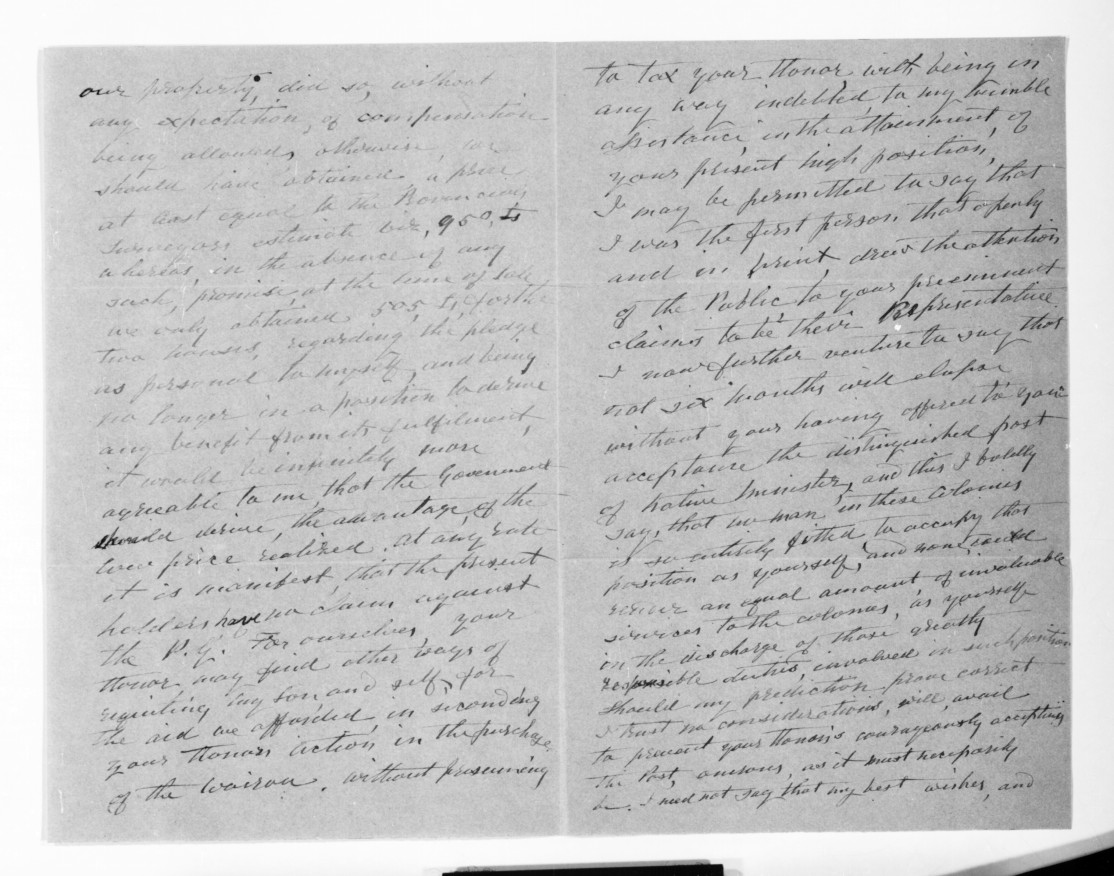 our property, did so, without
any expectation, of compensation
being allowed, otherwise, we
should have obtained a price
at least equal to the Provincial
Surveyors estimate viz, 950,
whereas, in the absence of any
such, promise, at the time of sale
we only obtained 505 for the
two houses, regarding the pledge
as personal to myself, and being
no longer in a position to derive
any benefit from its fulfilment,
it would be infinitely more
agreeable to me, that the Government
should derive, the advantage of the
low price realized. at any rate
it is manifest, that the present
holders have no claim against
the P.G. For ourselves, your
Honor may find other ways of
requiting my son and self, for
the aid we afforded, in seconding
your Honors action in the purchase
of the Wairau. without presuming
to tax your Honor, with being in
any way indebted to my humble
assistance, in the attainment of
your present high position,
I may be permitted to say that
I was the first person that openly
and in print, drew the attention
of the Public to your preeminent
claims to be their Representative
I now further venture to say that
not six months will elapse
without your having offered to your
acceptance the distinguished post
of Native Minister, and this I boldly
say, that no man in these Colonies
is so entirely fitted to occupy that
position as yourself, and none could
render an equal amount of invaluable
services to the colonies, as yourself
in the discharge of those greatly
responsible duties, involved in such position
should my prediction prove correct
I trust no considerations, will, avail
to prevent your Honor's courageously accepting
the Post, onerous, as it must necessarily
be. I need not say that my best wishes, and